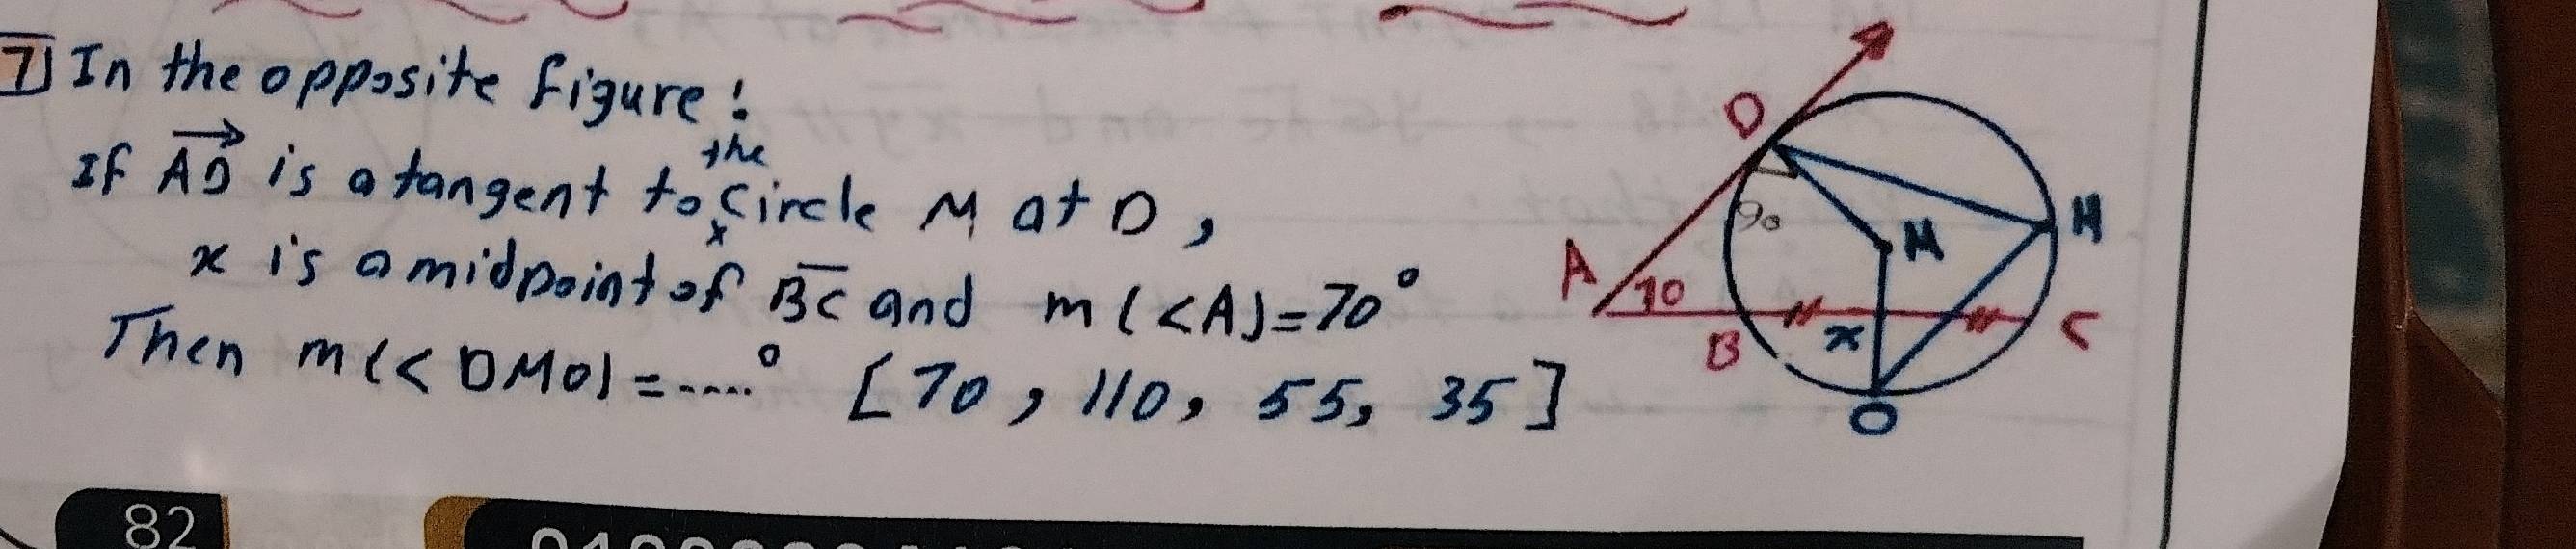 7 In the opposite figure:
If AD is a tangent to the circle M at D,
x is a midpoint of BC and m(<A)=70°
Then m(<DMO)=....° [70, 110, 55, 35]
D
H
90
M
A
70
B
x
C
O
82